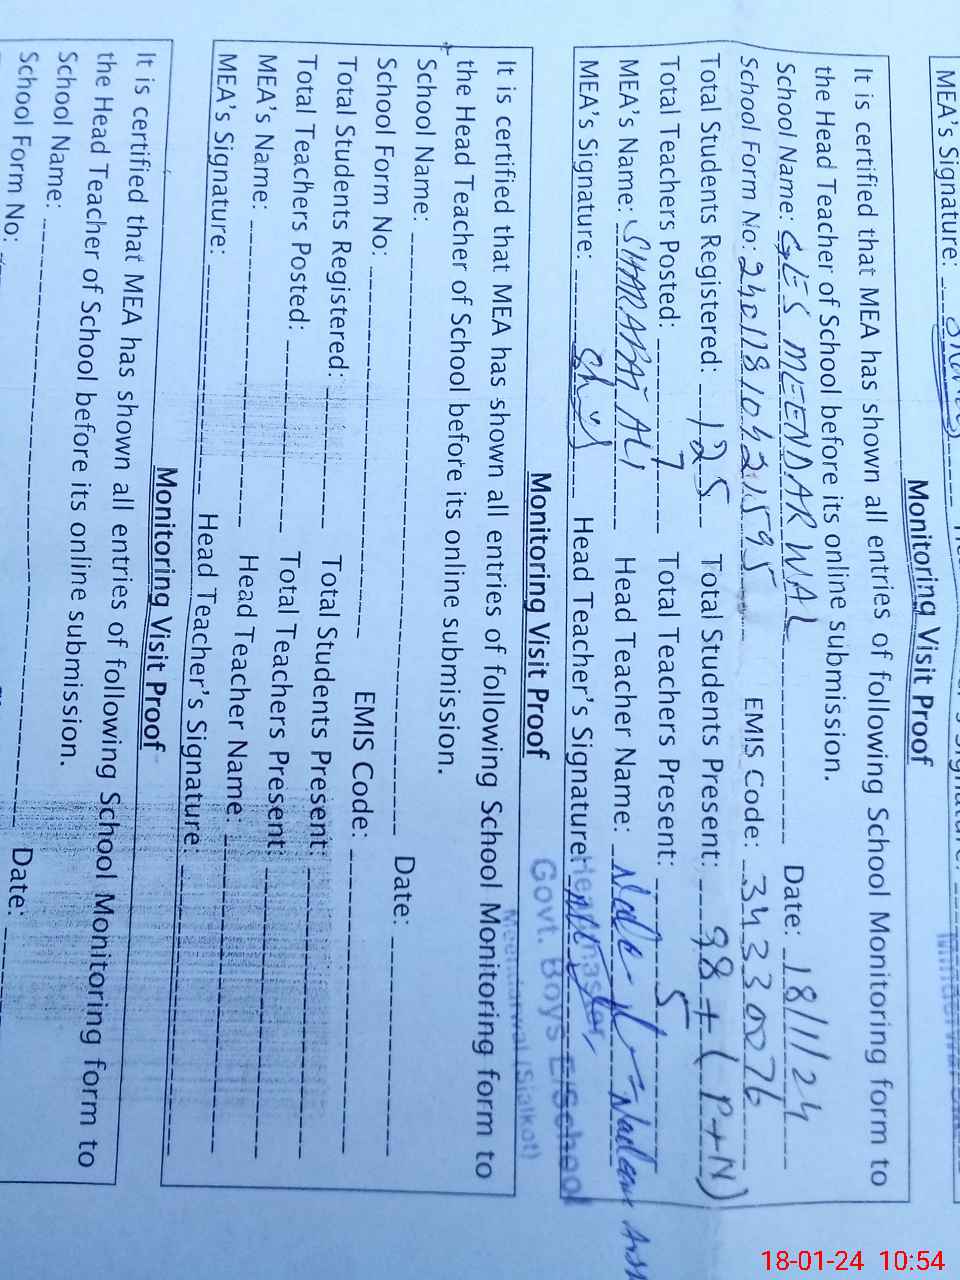 MEA's Signature:
Monitoring Visit Proof
It is certified that MEA has shown all entries of following School Monitoring form to
the Head Teacher of School before its online submission.
School Name: GES MEENDAR WAL Date: 18/1/24
School Form No: EMIS Code: 34330076
Total Students Registered: 125 Total Students Present: 98 + (P+N)
Total Teachers Posted: 7 Total Teachers Present: 5
MEA's Name: SHARAFAT ALI Head Teacher Name:
MEA's Signature: Head Teacher's Signature:
Headmaster,
Govt. Boys E/School
Meendarwal (Sialkot)
Monitoring Visit Proof
It is certified that MEA has shown all entries of following School Monitoring form to
the Head Teacher of School before its online submission.
School Name: Date:
School Form No: EMIS Code:
Total Students Registered: Total Students Present:
Total Teachers Posted: Total Teachers Present:
MEA's Name: Head Teacher Name:
MEA's Signature: Head Teacher's Signature:
Monitoring Visit Proof
It is certified that MEA has shown all entries of following School Monitoring form to
the Head Teacher of School before its online submission.
School Name: Date:
School Form No:
18-01-24 10:54